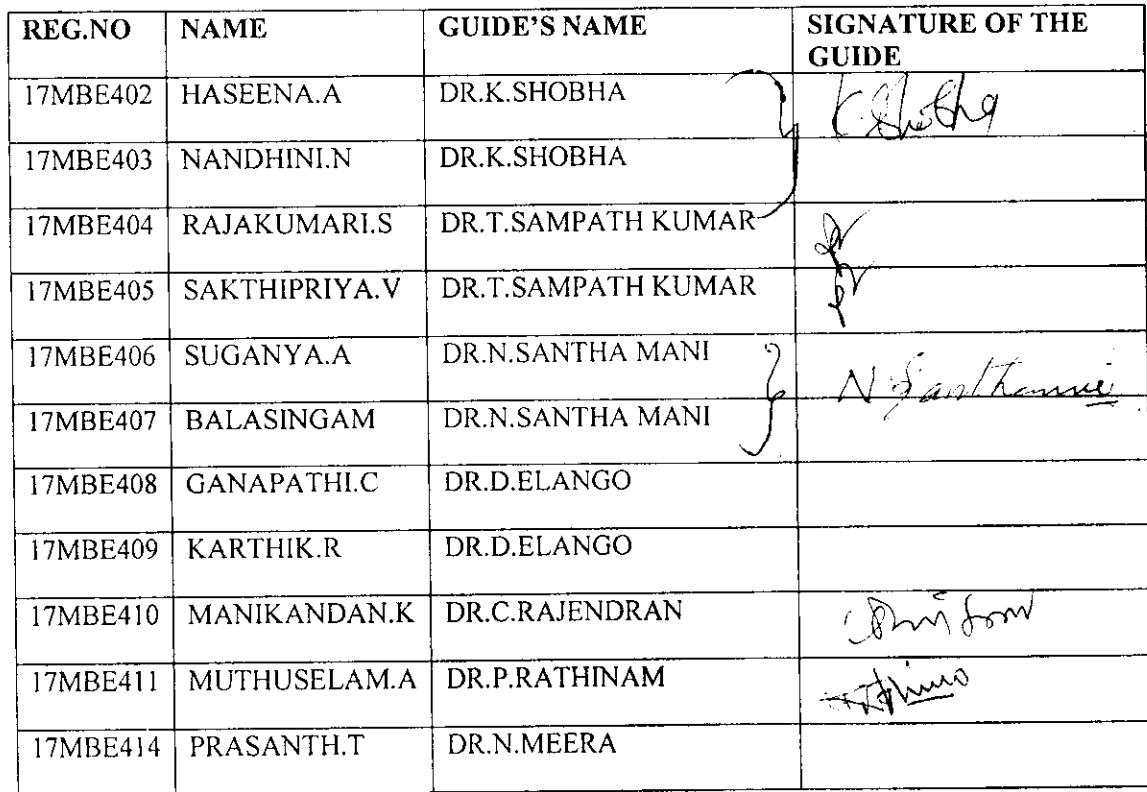 REG.NO NAME GUIDE'S NAME SIGNATURE OF THE
GUIDE
17MBE402 HASEENA.A DR.K.SHOBHA K. Shobha
17MBE403 NANDHINI.N DR.K.SHOBHA
17MBE404 RAJAKUMARI.S DR.T.SAMPATH KUMAR
17MBE405 SAKTHIPRIYA.V DR.T.SAMPATH KUMAR
17MBE406 SUGANYA.A DR.N.SANTHA MANI
17MBE407 BALASINGAM DR.N.SANTHA MANI
17MBE408 GANAPATHI.C DR.D.ELANGO
17MBE409 KARTHIK.R DR.D.ELANGO
17MBE410 MANIKANDAN.K DR.C.RAJENDRAN
17MBE411 MUTHUSELAM.A DR.P.RATHINAM
17MBE414 PRASANTH.T DR.N.MEERA